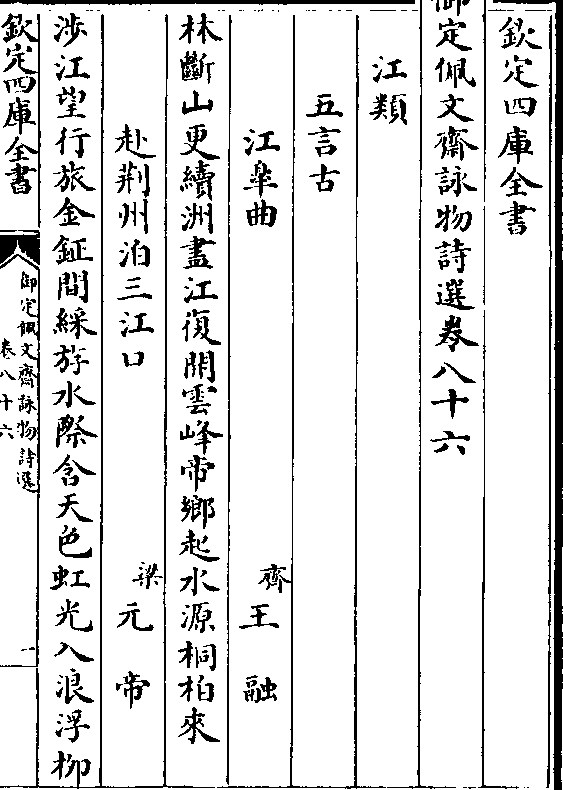 欽定四庫全書
御定佩文齋詠物詩選卷八十六
江類
五言古
江臯曲　齊王融
林斷山更續洲盡江復開雲峰帝鄉起水源桐柏來
赴荆州泊三江口　梁元帝
涉江望行旅金鉦間綵斿水際含天色虹光入浪浮柳
欽定四庫全書
御定佩文齋詠物詩選
卷八十六
一